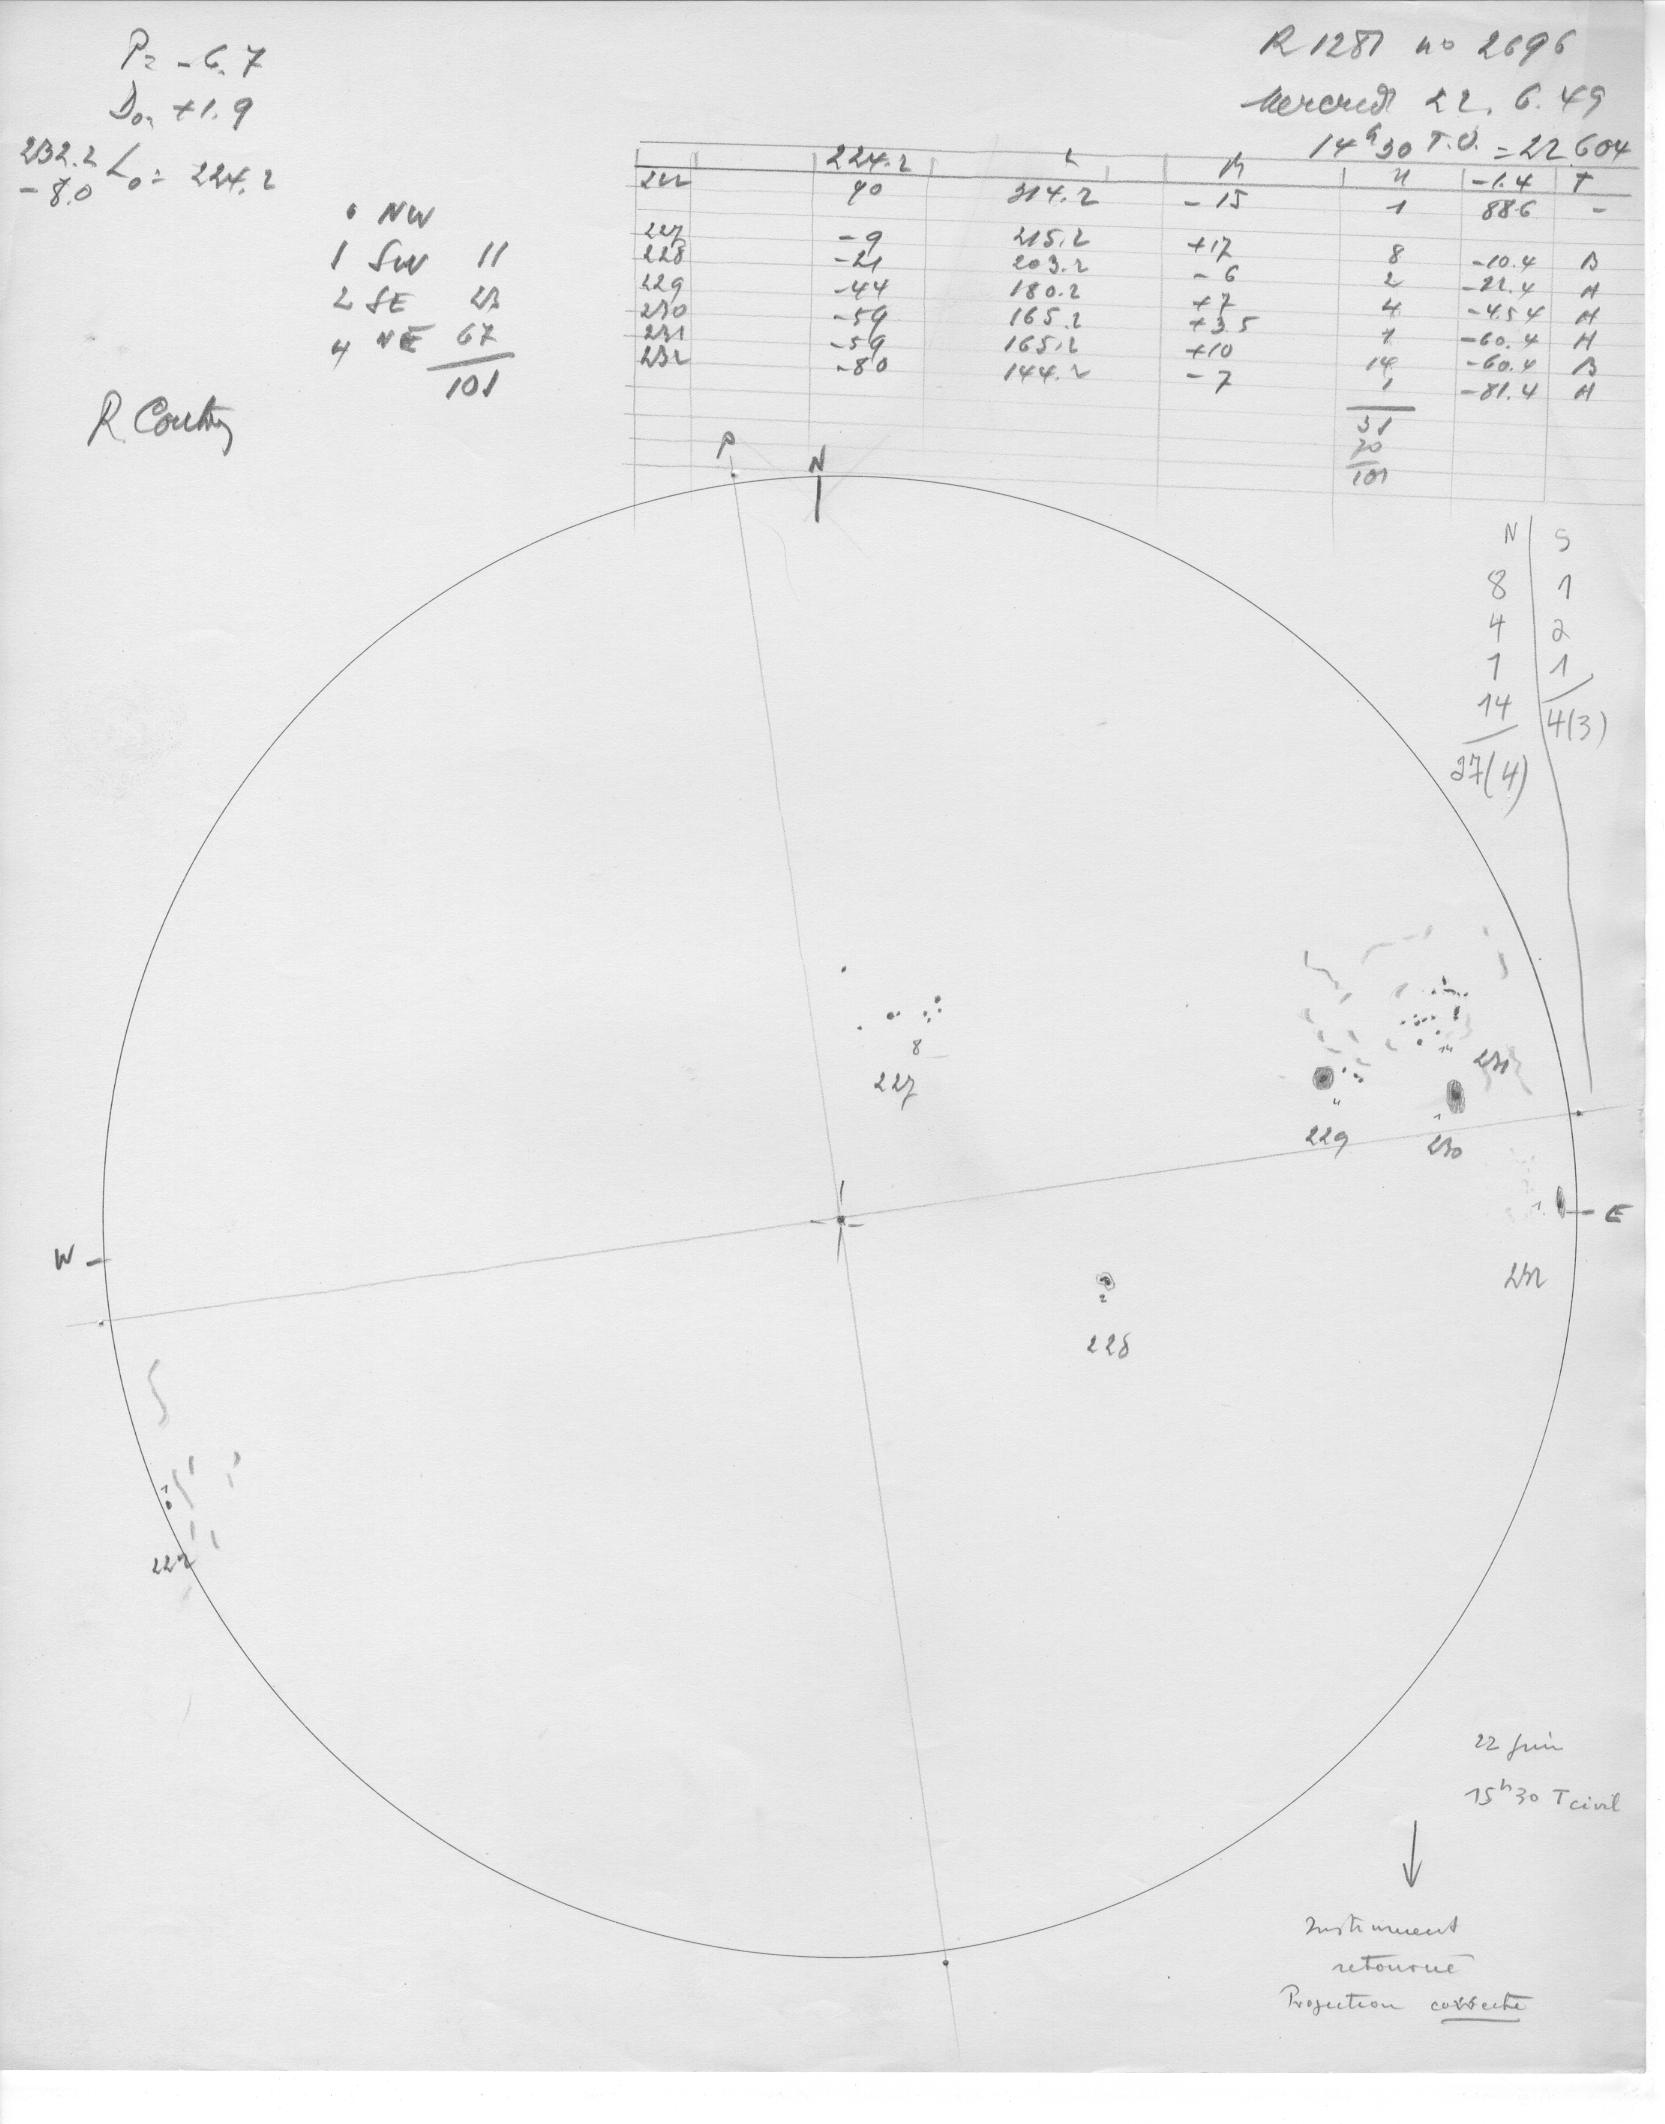 P = -6.7
D₀ = +1.9
232.2
-8.0
L₀ = 224.2
R 1281 no 2696
Mercredi 22. 6. 49
14ʰ30 T.U. = 22.604
0 NW
1 SW 11
2 SE 23
4 NE 67
101
224.2 L B N -1.4 T
222 90 314.2 -15 1 88.6 -
227 -9 215.2 +17 8 -10.4 B
228 -21 203.2 -6 2 -22.4 A
229 -44 180.2 +7 4 -45.4 H
230 -59 165.2 +3.5 1 -60.4 H
231 -59 165.2 +10 14 -60.4 B
232 -80 144.2 -7 1 -81.4 H
31
70
101
P
N
N S
8 1
4 2
1 1
14 4(3)
27(4)
8
227
14
231
4
229
1
230
W
E
1
232
2
228
1
222
22 juin
15ʰ30 T civil
Instrument
retourné
Projection correcte